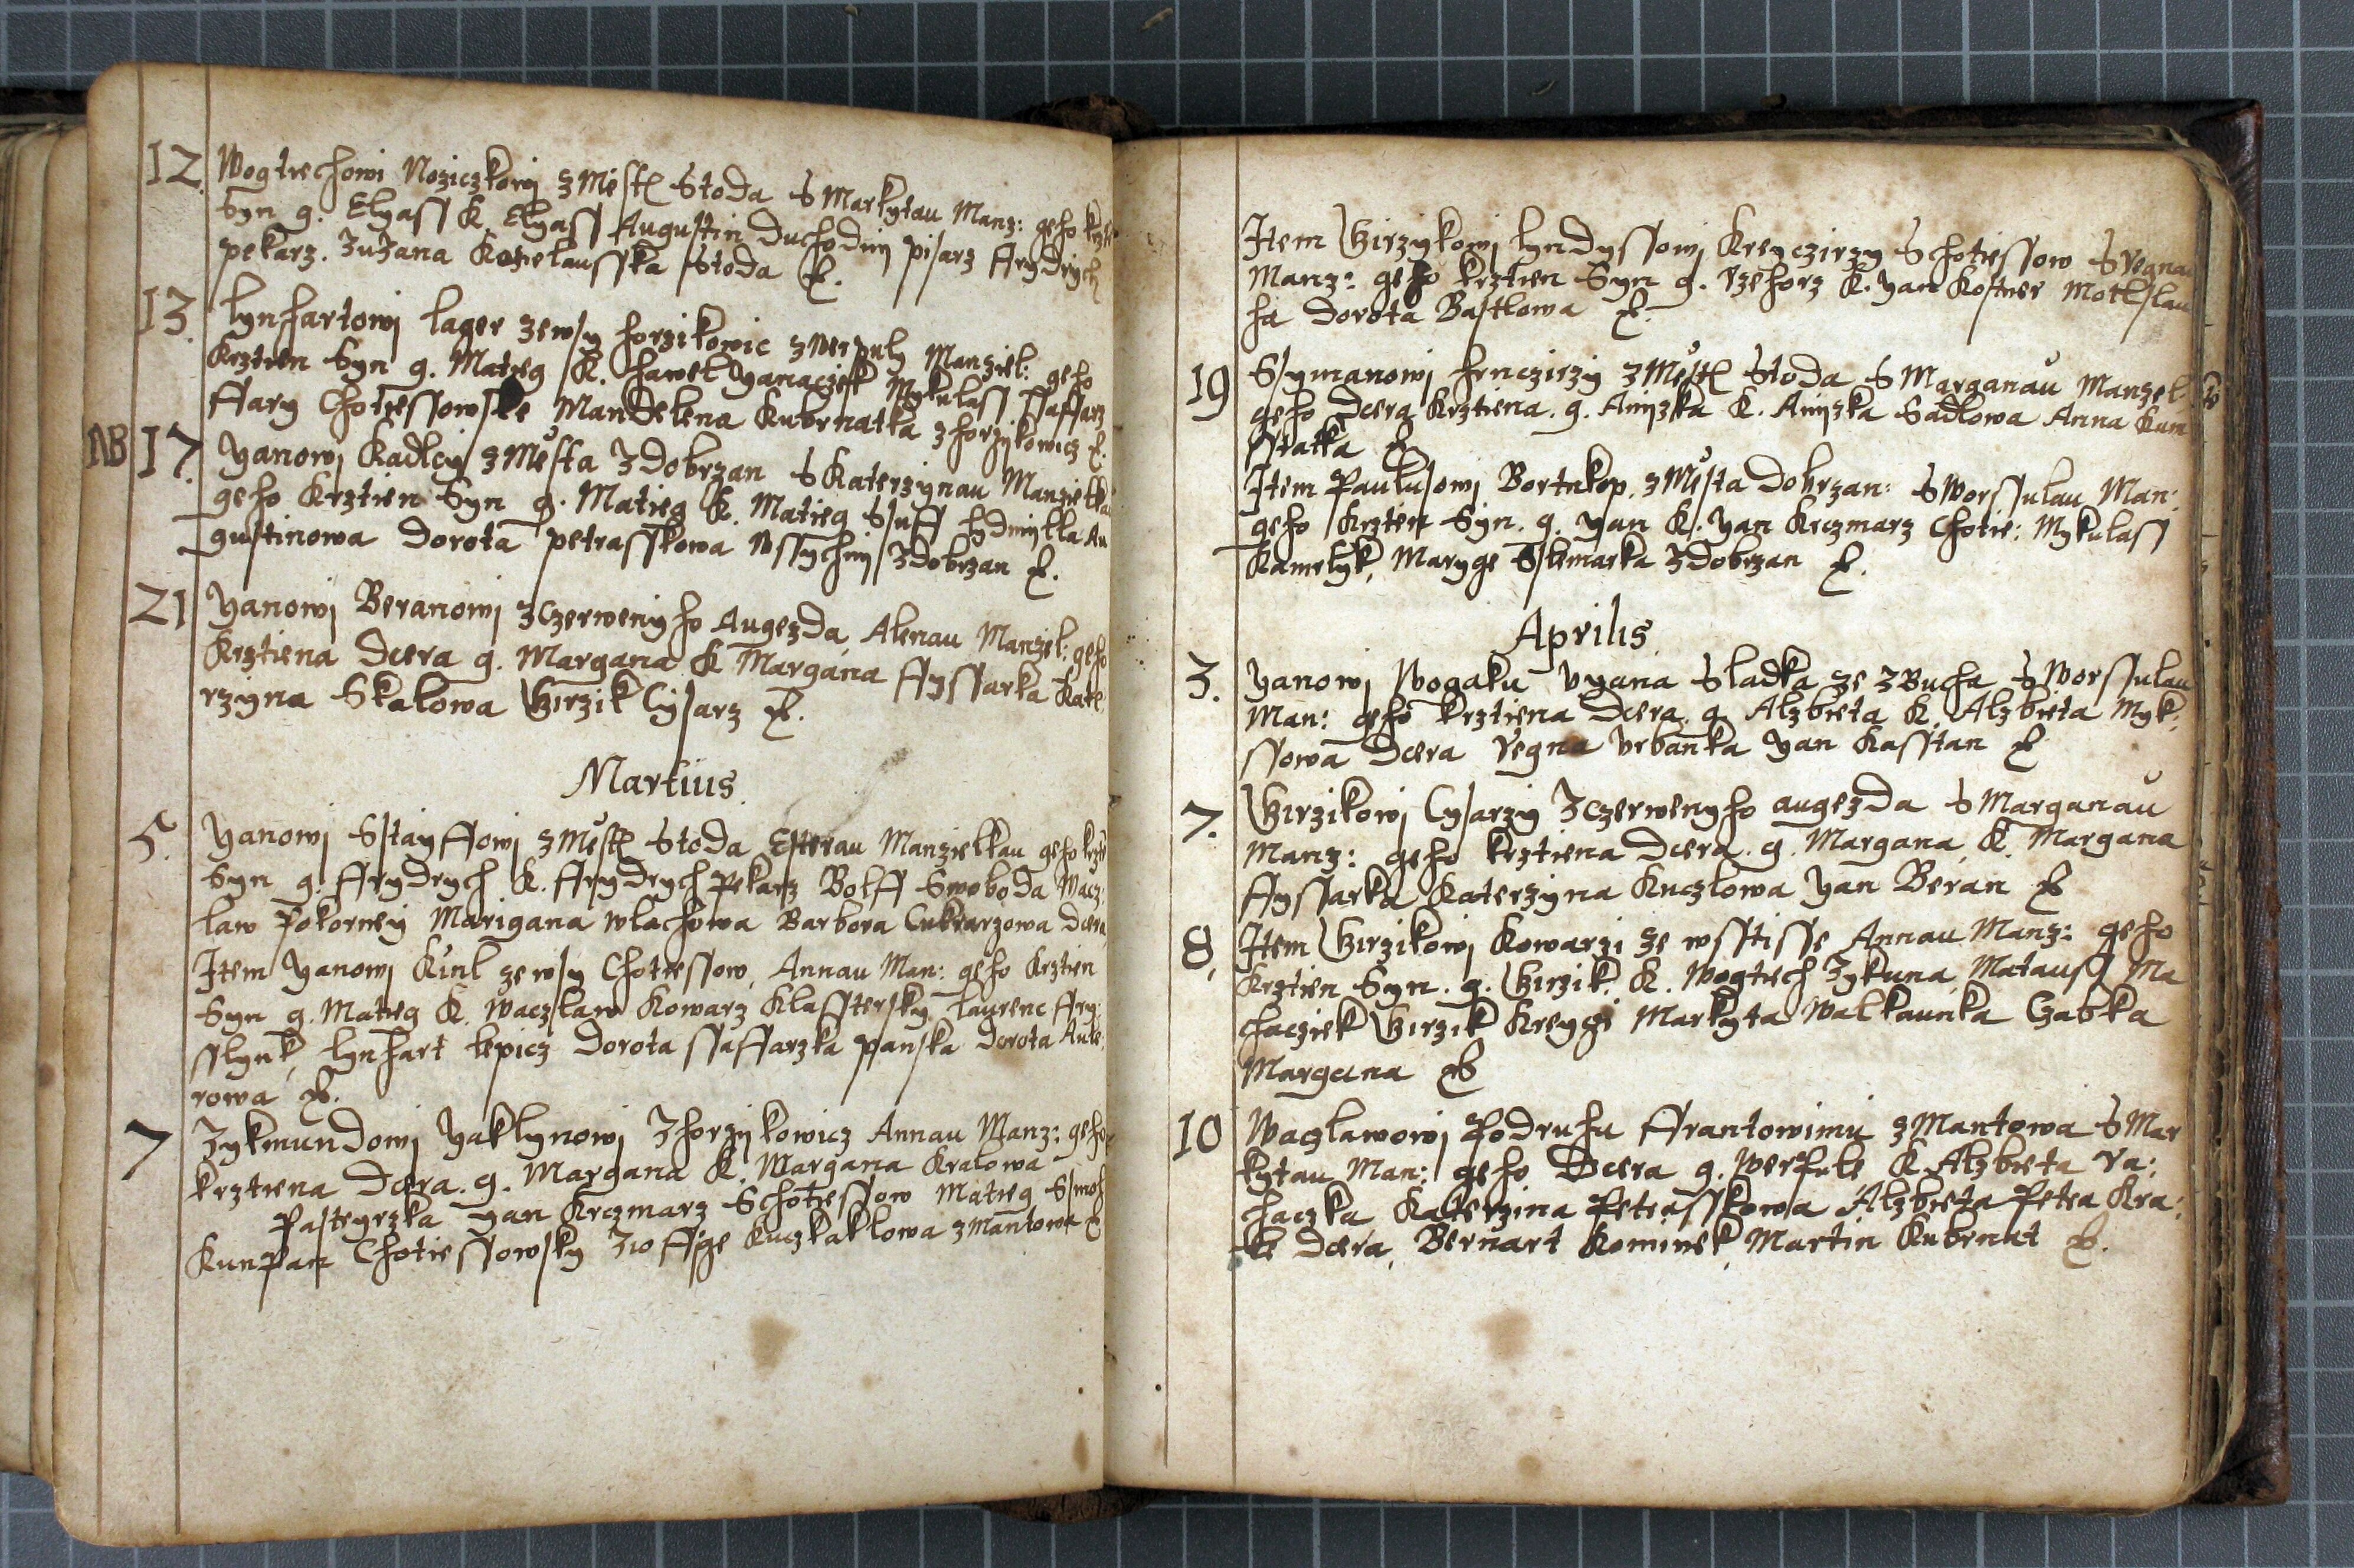 12. Wogtiechowi Noziczkowj z Mёstł Stoda S Markytau Manz: geho
Syn g. Elyass K. Elyass Augustin Duchodnj pisarz Frydrych
pekarz. Zuzana Stoda
13. Lynhartowj Lager ze wsy Horzikowic z Manziel: geho
Krztien Syn g. Matieg K. Hawel Yanaczek Mykulass Ssaffarz
Fary Chotiessowske Mandelena Kubrnatka z Horzykowicz
NB 17. Yanowj Kadlecy z Mёsta Zdobrzan S Katerzynau Manzielkau
geho Krztien Syn g. Matieg K. Matieg Lydmylla Au
gustinowa Dorota Petrasskowa Wssychnj Zdobrzan
21 Yanowj Beranowj z Czerwenyho Augezda Alenau Manzel: geho
Krztiena Dcera g. Margana K Margana Fyssarka Kate
rzyna Skalowa Girzik Cysarz
Martius
5. Yanowj z Mёstł Stoda Esterau Manzielkau geho
Syn g. Frydrych K. Frydrych Pekarz Bolff Swoboda Wacz:
law Pokorney Marigana Wlachowa Barbora Cukrarzowa Dcera
Item Yanowj Kunl ze wsy Chotiessow, Annau Man: geho Krztien
Syn g. Matieg K. Waczlaw Kowarz Klassterský, Laurenc Fry:
sslynk, Lynhart Lepicz Dorota Ssaffarzka panska Dorota Aule:
rowa
7 Zykmundowj Yaklynowj z Horzykowicz Annau Manz: geho
krztiena Dcera. g. Margana K. Margana Kralowa
Pastyrzka Yan Krczmarz S Chotiessow Matieg
Kunpan Chotiessowsky Zioffge Kuczkaklowa z Mantowa
Item Girzykowj Lyndyssowj Kreyczirzy S Chotiessow S Regnau
Manz: geho krztien Syn g. Rzehorz K. Yan Kostner
ha Dorota Bastlowa
19 Ssymanowj Hrnczirzy z Mёstł Stoda S Marganau Manzel
geho Dcera Krztiena. g. Anyzka K. Anyzka Sadlowa Anna Kun
statka
Item Paulusowj Bortnkop. z Mёsta Dobrzan: S Worssulau Man:
geho Krztien Syn. g. Yan K. Yan Krczmarz Chotie: Mykulass
Kamelyk, Maryge Sklenarka Zdobrzan
Aprilis.
3. Yanowj Wogaku v Yana Sladka ze Zbucha S Worssulau
Man: geho krztiena Dcera. g. Alzbieta K. Alzbieta Myk:
ssowa Dcera Regna Vrbanka Yan Kasstan
7. Girzikowj Cysarzy z Czerwenyho augezda S Marganau
Manz: geho krztiena Dcera. g. Margana, K. Margana
Fyssarka Katerzyna Kuczlowa Yan Beran
8. Item Girzikowj Kowarzi ze Wsstisse Annau Manz: geho
Krztien Syn. g. Girzik. K. Wogtiech Zykuna, Matauss Ma
chaczek Girzik Kreyzi Markyta Walkaunka Czabka
Margana
10 Waczlawowj Podruhu Frantowimu z Mantowa S Mar
kytau Man: geho Dcera g. Worssule K. Alzbieta Ra:
chaczka Katerzina Petrasskowa Alzbieta Petra Kra:
le Dcera, Bernart Kominek, Martin Kubrnat